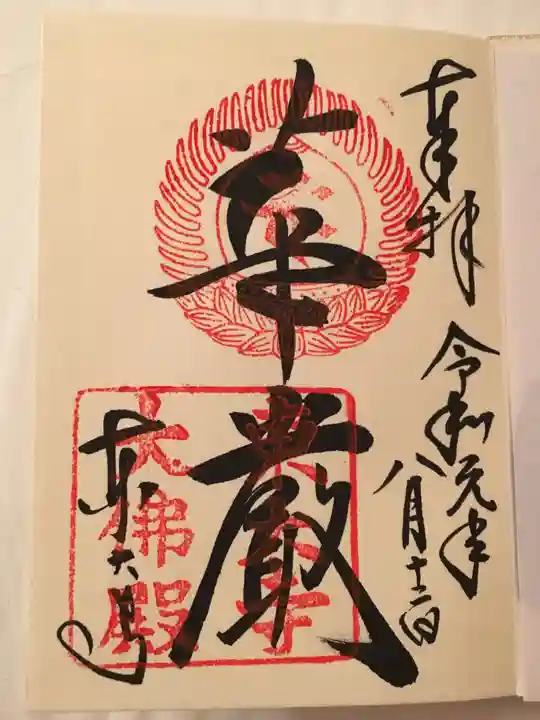 奉拝
令和元年
八月十二日
華嚴
東大寺
東大寺
大佛殿